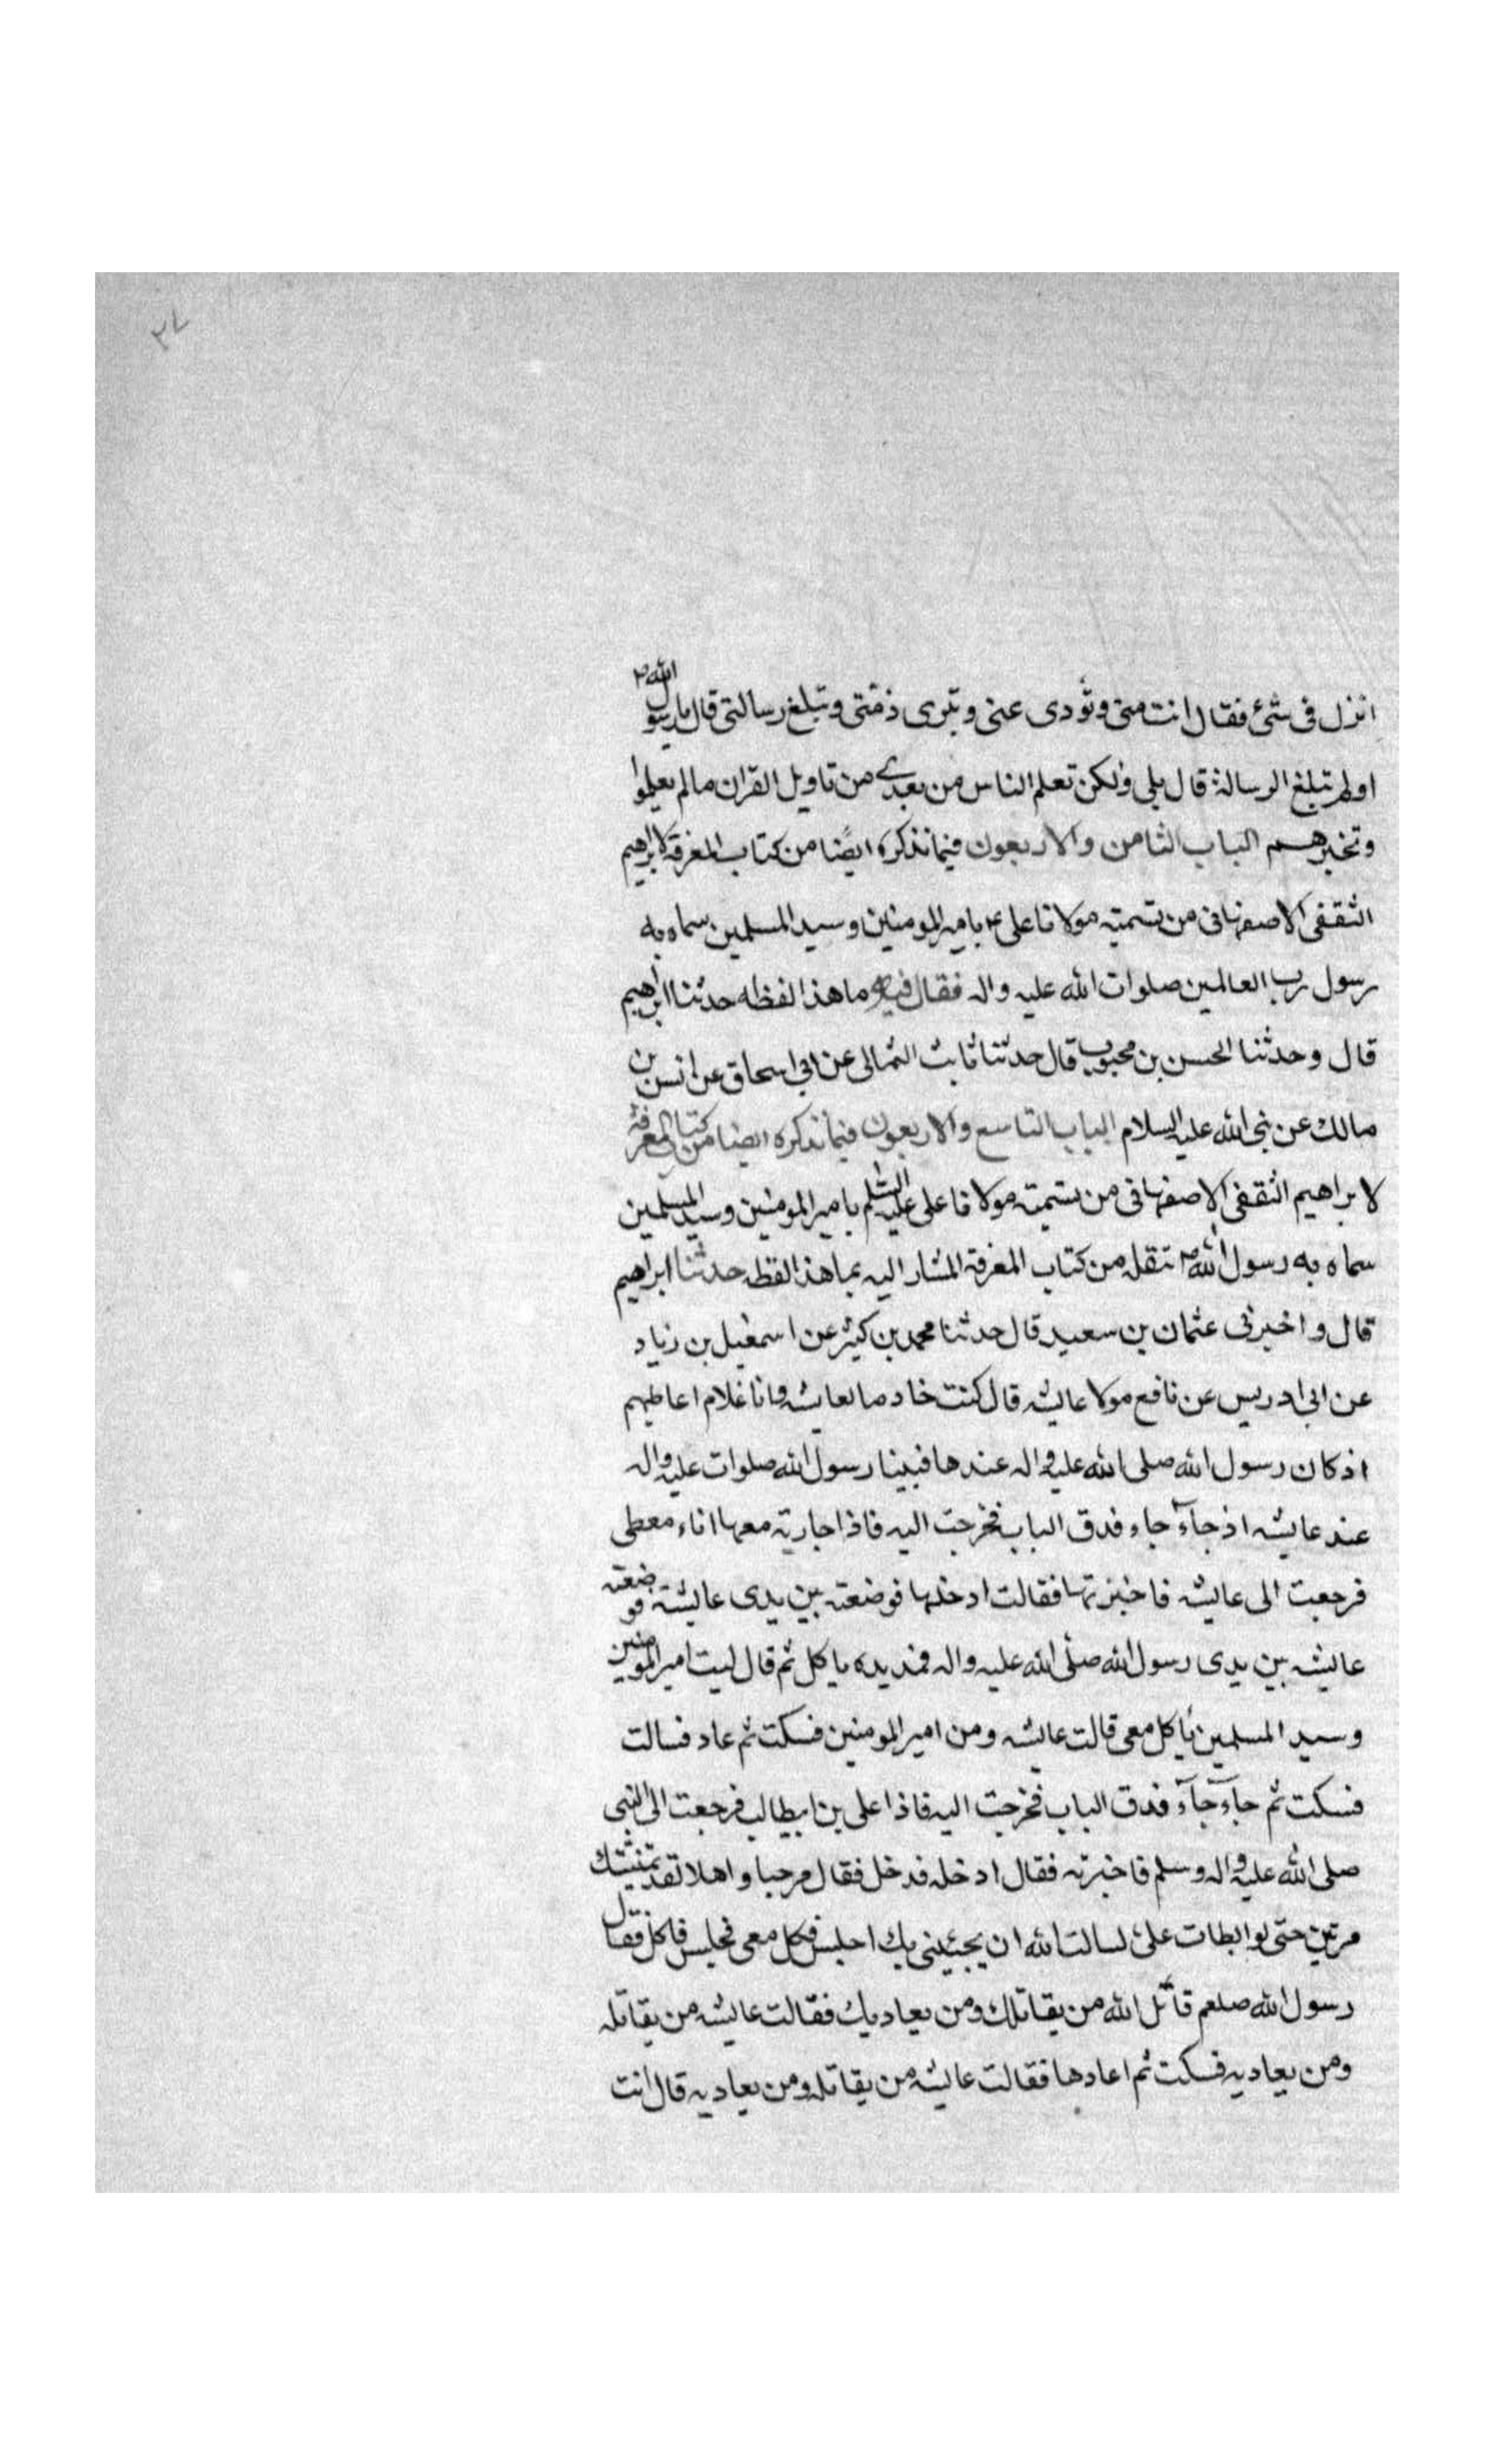 ٢٧
انزل فى شئ فقال انت منى وتؤدى عنى وتبرى ذمتى وتبلغ رسالتى قال يا رسول الله
اولم تبلغ الرسالة قال بلى ولكن تعلم الناس من بعدى من تاويل القران ما لم يعلموا
وتخبرهم الباب الثامن والاربعون فيما نذكره ايضا من كتاب المعرفة لابراهيم
الثقفى الاصفهانى من تسميته مولانا على ع بامير المومنين وسيد المسلمين سماه به
رسول رب العالمين صلوات الله عليه واله فقال فيه ما هذا لفظه حدثنا ابراهيم
قال وحدثنا الحسن بن محبوب قال حدثنا ثابت الثمالى عن ابى اسحاق عن انس بن
مالك عن نبى الله عليه السلام الباب التاسع والاربعون فيما نذكره ايضا من كتاب المعرفة
لابراهيم الثقفى الاصفهانى من تسميته مولانا على عليه السلم بامير المومنين وسيد المسلمين
سماه به رسول الله ص ننقله من كتاب المعرفة المشار اليه بما هذا لفظه حدثنا ابراهيم
قال واخبرنى عثمان بن سعيد قال حدثنا محمد بن كثير عن اسمعيل بن زياد
عن ابى ادريس عن نافع مولا عايشه قال كنت خادما لعايشه وانا غلام اعاطيهم
اذ كان رسول الله صلى الله عليه واله عندها فبينا رسول الله صلوات عليه واله
عند عايشه اذ جآء جاء فدق الباب فخرجت اليه فاذا جارية معها اناء مغطى
فرجعت الى عايشه فاخبرتها فقالت ادخلها فوضعته بين يدى عايشة فوضعته
عايشه بين يدى رسول الله صلى الله عليه واله فمد يده ياكل ثم قال ليت امير المومنين
وسيد المسلمين ياكل معى قالت عايشه ومن امير المومنين فسكت ثم عاد فسالت
فسكت ثم جآء جآء فدق الباب فخرجت اليه فاذا على بن ابيطالب فرجعت الى النبى
صلى الله عليه واله وسلم فاخبرته فقال ادخله فدخل فقال مرحبا واهلا لقد تمنيتك
مرتين حتى لو ابطات على لسالت الله ان يجيئنى بك اجلس فكل معى فجلس فاكل فقال
رسول الله صلعم قاتل الله من يقاتلك ومن يعاديك فقالت عايشه من يقاتله
ومن يعاديه فسكت ثم اعادها فقالت عايشه من يقاتله ومن يعاديه قال انت